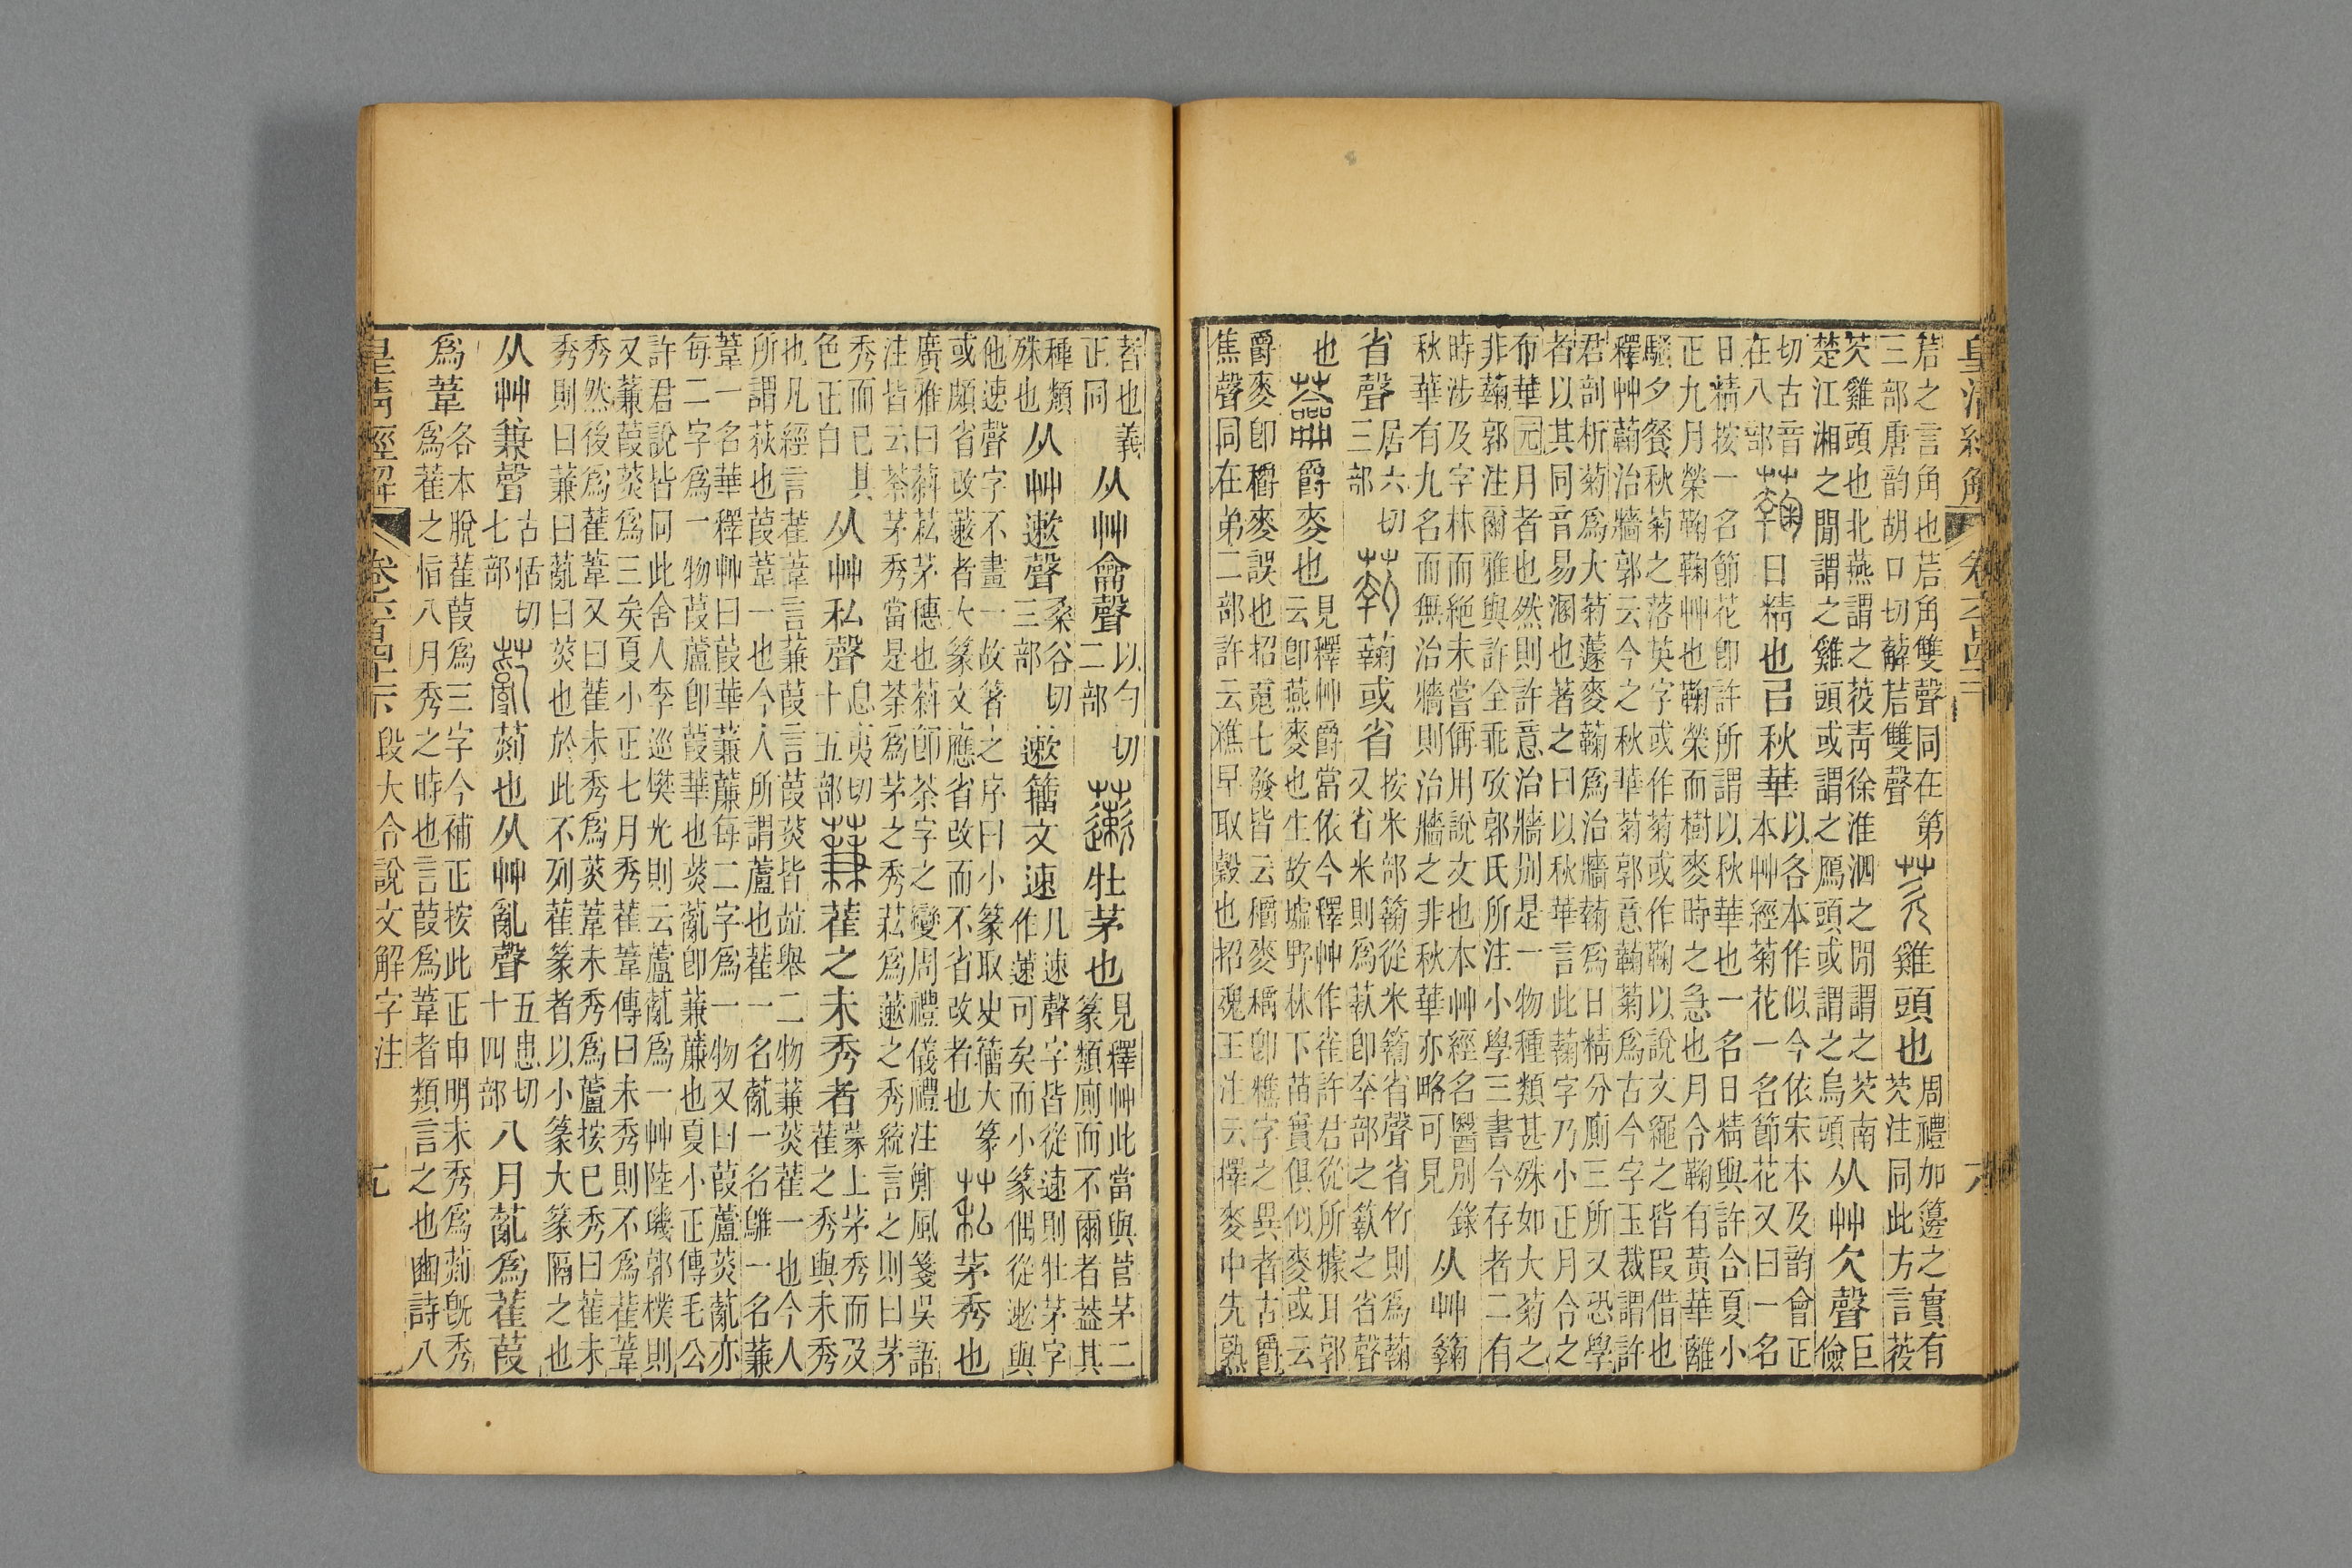 茩之言角也茩角雙聲同在第
三部唐韵胡口切薢茩雙聲
雞頭也
周禮加籩之實有
芡注同此方言䓈
芡雞頭也北燕謂之䓈靑徐淮泗之閒謂之芡南
楚江湘之閒謂之雞頭或謂之鴈頭或謂之烏頭
从艸欠聲
巨
儉
切古音
在八部
日精也㠯秋華
以各本作似今依宋本及韵會正
本艸經菊花一名節花又曰一名
日精按一名節花卽許所謂以秋華也一名日精與許合夏小
正九月榮鞠鞠艸也鞠榮而樹麥時之急也月令鞠有黃華離
騷夕餐秋菊之落英字或作菊或作鞠以說文繩之皆叚借也
釋艸蘜治牆郭云今之秋華菊郭意蘜菊爲古今字玉裁謂許
君剖析菊爲大菊蘧麥蘜爲治牆蘜爲日精分廁三所又恐學
者以其同音易溷也著之曰以秋華言此蘜字乃小正月令之
布華元月者也然則許意治牆別是一物種類甚殊如大菊之
非蘜郭注爾雅與許全乖攷郭氏所注小學三書今存者二有
時涉及字林而絶未嘗偁用說文也本艸經名醫別錄
秋華有九名而無治牆則治牆之非秋華亦略可見
从艸
省聲
居六切
三部
蘜或省
按米部從米籒省聲省竹則爲蘜
又省米則爲卽㚔部之之省聲
也
爵麥也
見釋艸爵當依今釋艸作雀許君從所據耳郭
云卽燕麥也生故墟野林下苗實俱似麥或云
爵麥卽穱麥誤也招䰟七發皆云穱麥穱卽䊮字之異者古爵
焦聲同在弟二部許云䊮早取穀也招魂王注云擇麥中先孰
皇清經解
者也義
正同
从艸龠聲
以勺切
二部
牡茅也
見釋艸此當與菅茅二
篆類廁而不爾者葢其
種類
殊也
从艸遬聲
桑谷切
三部
遬籒文速
凡速聲字皆從速則牡茅字
作藗可矣而小篆偶從遬與
他速聲字不畫一故箸之序曰小篆取史籒大篆
或頗省改藗者大篆文應省改而不省改者也
茅秀也
廣雅曰䓌茅穗也卽荼字之變周禮儀禮注鄭風箋吳語
注皆云荼茅秀當是荼爲茅之秀䓌爲藗之秀統言之則曰茅
秀而已其
色正白
从艸私聲
息夷切
十五部
雚之未秀者
蒙上茅秀而及
雚之秀與未秀
也凡經言雚葦言蒹葭言葭菼皆竝舉二物蒹菼雚一也今人
所謂荻也葭葦一也今人所謂蘆也雚一名薍一名鵻一名蒹
葦一名華釋艸曰葭華蒹薕每二字爲一物又曰葭蘆菼薍亦
每二字爲一物葭蘆卽葭華也菼薍卽蒹薕也夏小正傳毛公
許君說皆同此舍人李巡樊光則云蘆薍爲一艸陸璣郭樸則
又蒹葭菼爲三矣夏小正七月秀雚葦傳曰未秀則不爲雚葦
秀然後爲雚葦又曰雚未秀爲菼葦未秀爲蘆按已秀曰雚未
秀則曰蒹曰薍曰菼也於此不列雚篆者以小篆大篆隔之也
从艸兼聲
古恬切
七部
薍
也从艸亂聲
五患切
十四部
八月薍爲雚葭
爲葦
各本脫雚葭爲三字今補正按此正申明未秀爲旣秀
爲雚之恉八月秀之時也言葭爲葦者類言之也豳詩八
皇清經解
段大令說文解字注